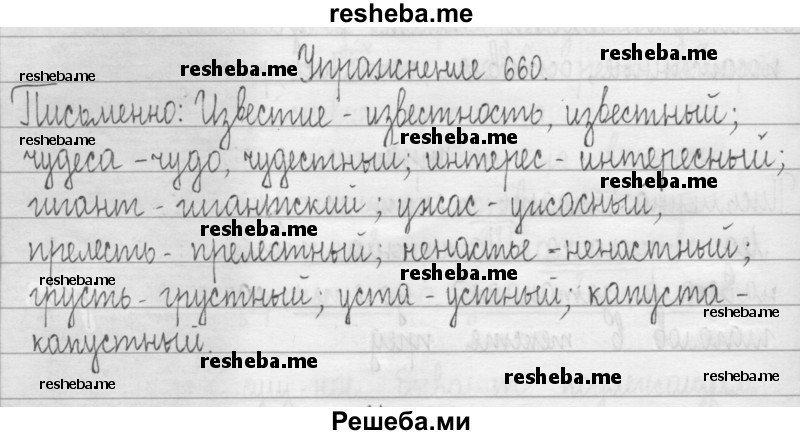 resheba.me
Упражнение 660.
Письменно: Известие - известность, известный;
чудеса - чудо, чудестный; интерес - интересный;
гигант - гигантский; ужас - ужасный,
прелесть - прелестный; ненастье - ненастный;
грусть - грустный; уста - устный; капуста -
капустный.
resheba.me resheba.me resheba.me resheba.me
resheba.me resheba.me
resheba.me resheba.me
resheba.me resheba.me
resheba.me resheba.me
resheba.me resheba.me
resheba.me resheba.me
Решеба.ми